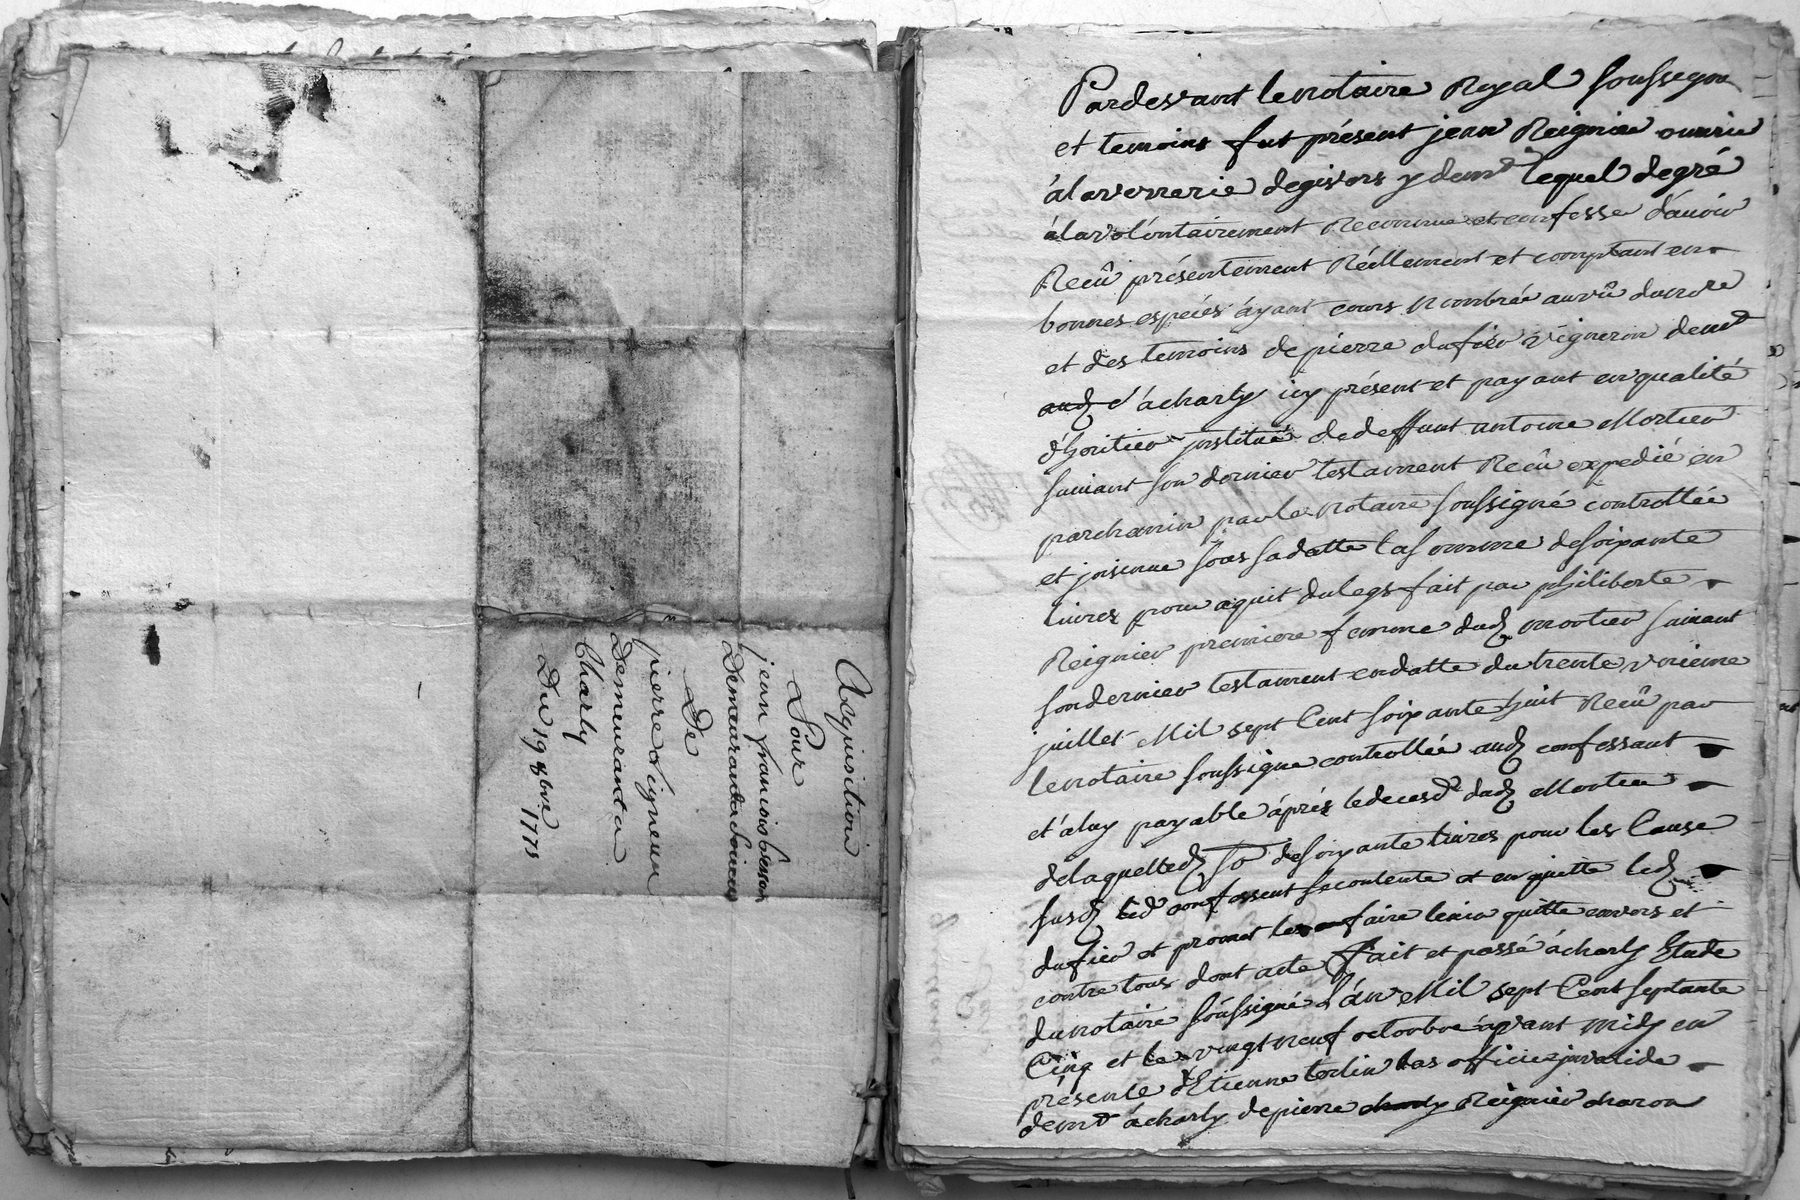 Acquisition
Pour
jean francois besson
Demeurant a Soucieu
De
pierre Vigneau
Demeurant a
Charly
Du 19 9bre 1775
Pardevant le notaire Royal soussigne
et temoins fut présent jean Reignier ouvrie
à la verrerie de givors y demt lequel de gré
à la volontairement Reconnu et confesse d'avoir
Recû présentement Réellement et comptant en
bonnes espéces áyant cours Nombrée au vû du notre
et des temoins de pierre dufieu vigneron demt
audt à charly icy présent et payant en qualité
d'heritier institué de deffunt antoine Mortier
suivant son dernier testament Recû expedié en
parchemin par le notaire soussigné controllée
et jnsinue sous sa datte la somme de soixante
livres pour aquit du legs fait par philiberte
Reignier premiere femme dudt mortier suivant
son dernier testament en datte du trente unieme
juillet Mil sept Cent soixante huit Recû par
le notaire soussigne controllée audt confessant
et à luy payable áprés le decesd dudt Mortier
de laquelledt so de soixante livres pour les Cause
susdt led confessent se contente et en quitte ledt
dufieu et promet les en faire tenir quitte envers et
contre tous dont acte fait et passé à charly Etude
du notaire soussigné L'an Mil sept Cent septante
Cinq et le vingt neuf octobre ávant midy en
présente d'Etienne terlin bas officie jnvalide
demt à charly de pierre charly Reignier charon